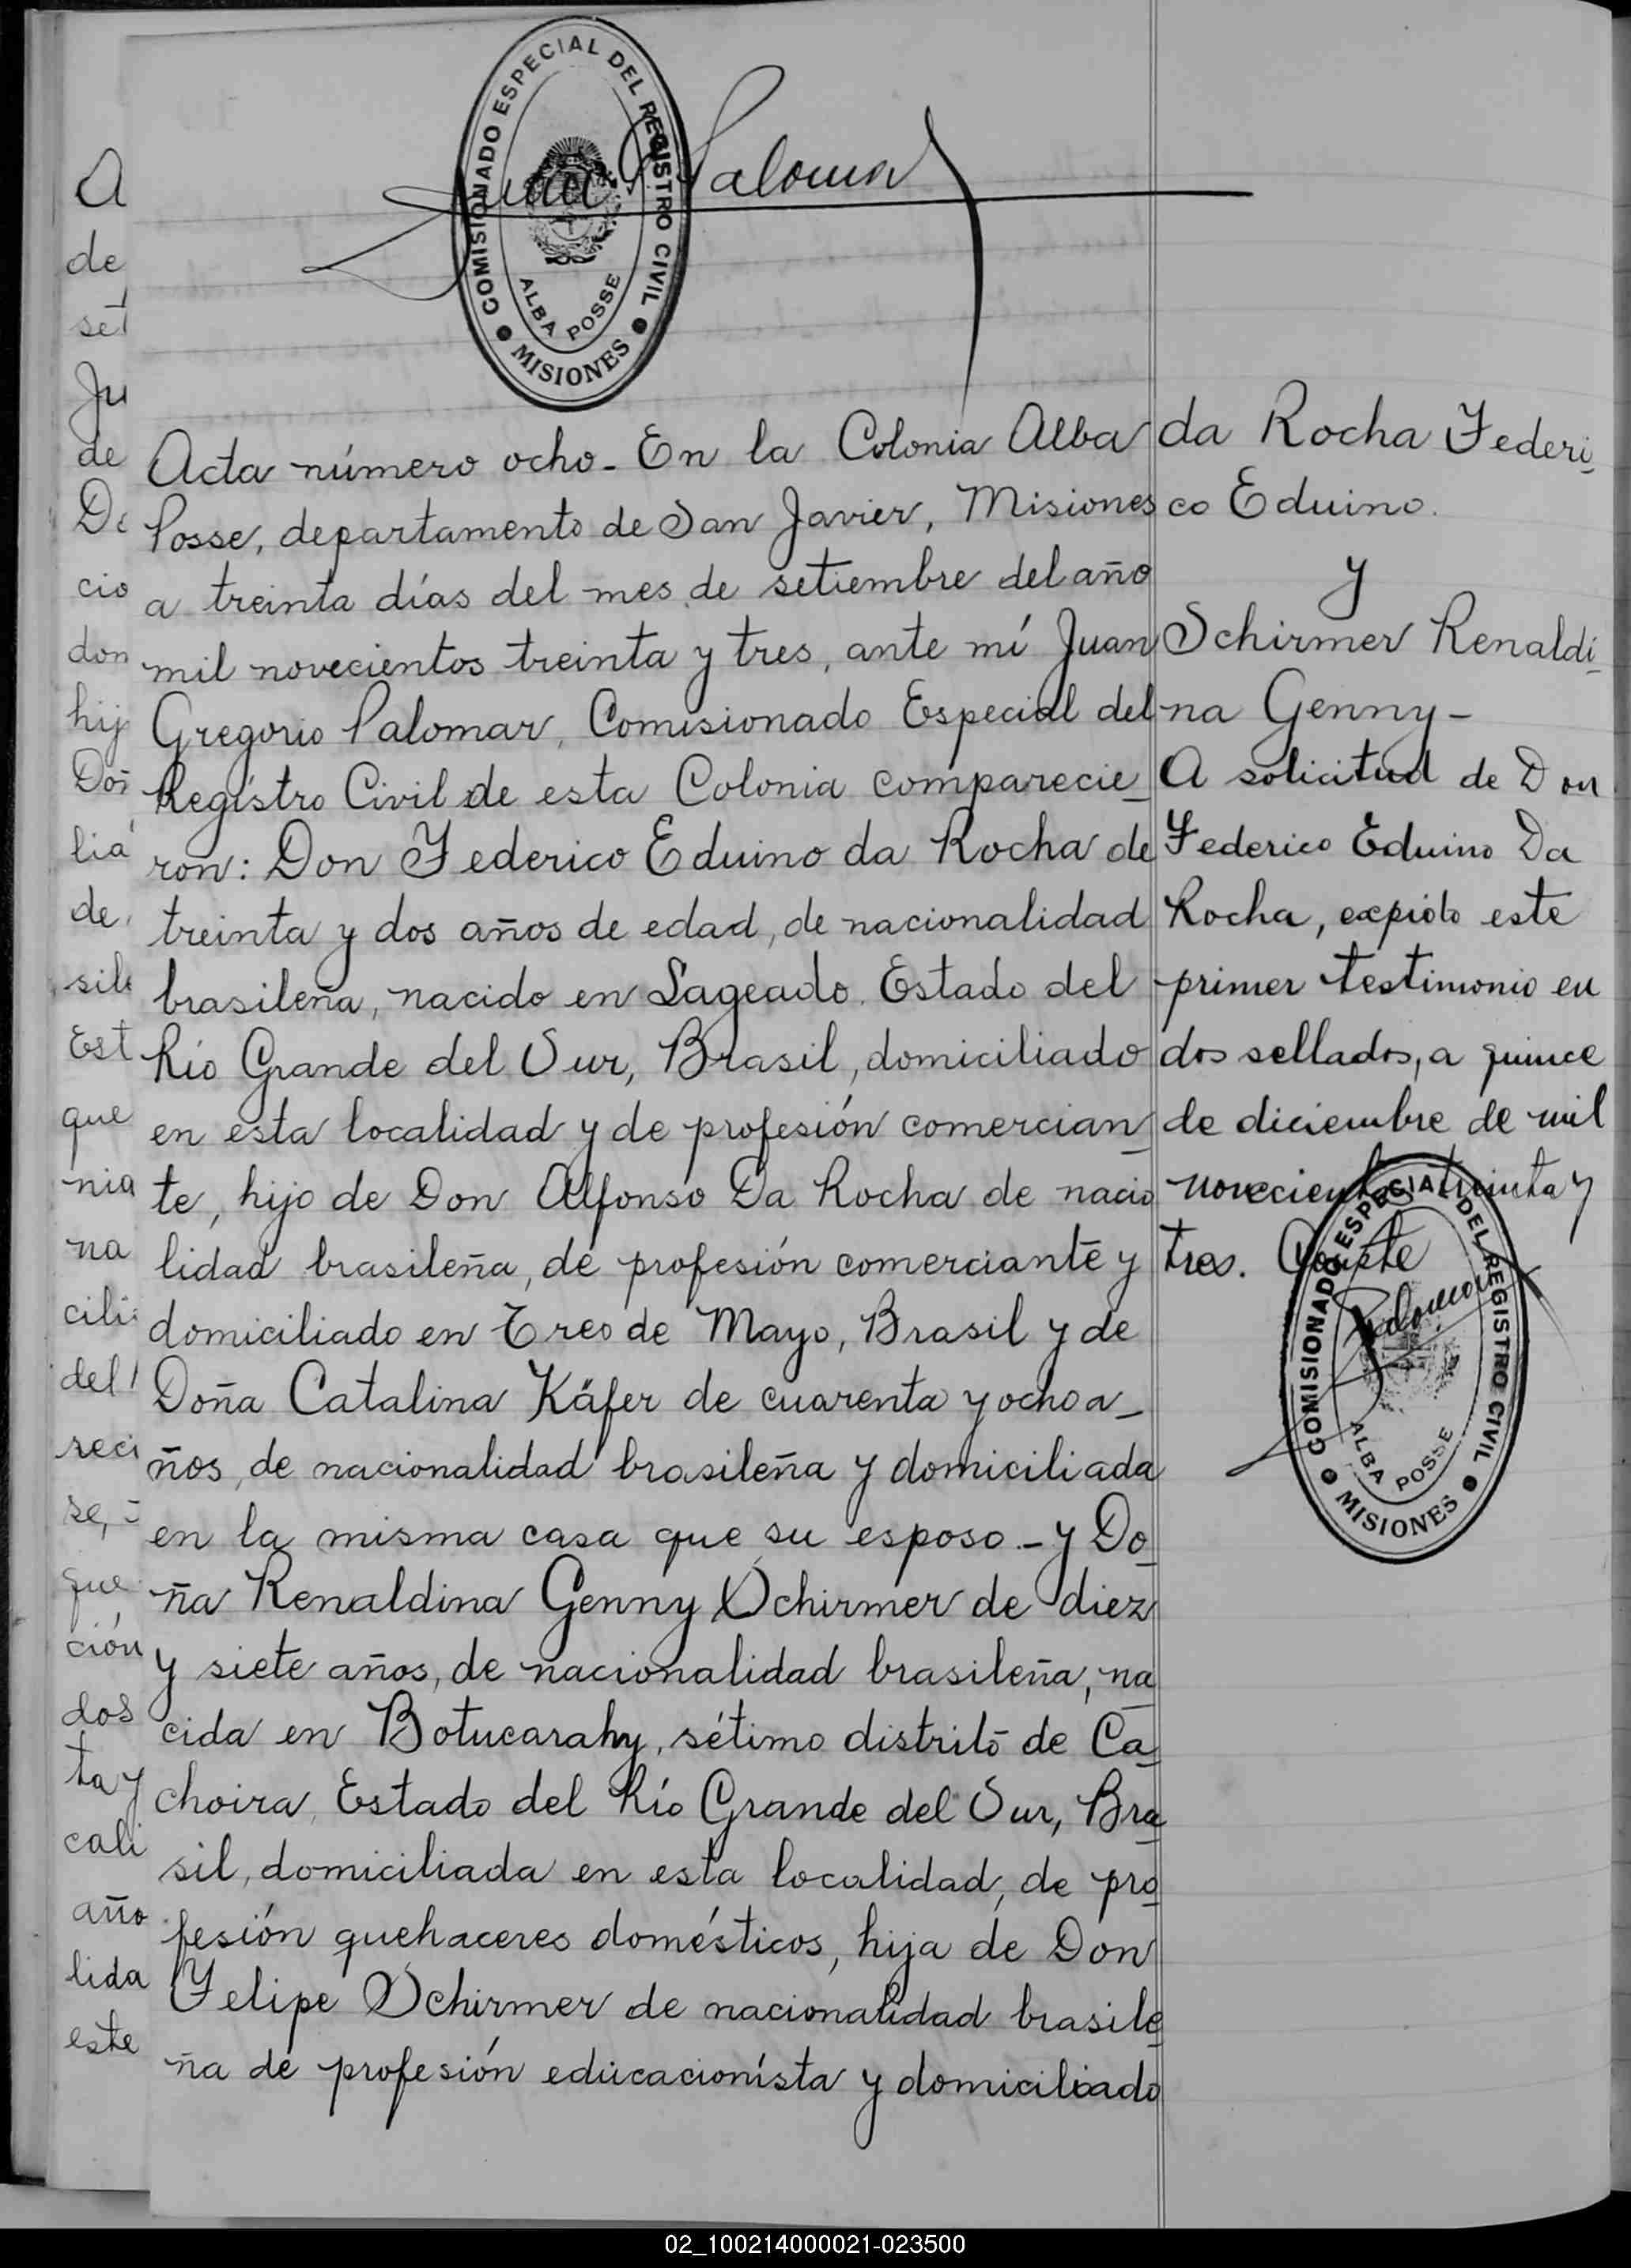 COMISIONADO ESPECIAL DEL REGISTRO CIVIL
ALBA POSSE
MISIONES
Juan G Palomar
Acta número ocho.- En la Colonia Alba
Posse, departamento de San Javier, Misiones
a treinta días del mes de setiembre del año
mil novecientos treinta y tres, ante mí Juan
Gregorio Palomar, Comisionado Especial del
Registro Civil de esta Colonia comparecie_
ron: Don Federico Eduino da Rocha de
treinta y dos años de edad, de nacionalidad
brasileña, nacido en Lageado. Estado del
Río Grande del Sur, Brasil, domiciliado
en esta localidad y de profesión comercian_
te, hijo de Don Alfonso Da Rocha de nacio
lidad brasileña, de profesión comerciante y
domiciliado en Tres de Mayo, Brasil y de
Doña Catalina Käfer de cuarenta y ocho a_
ños, de nacionalidad brasileña y domiciliada
en la misma casa que su esposo.- y Do_
ña Renaldina Genny Schirmer de diez
y siete años, de nacionalidad brasileña, na_
cida en Botucarahy, sétimo distrito de Ca_
choira, Estado del Río Grande del Sur, Bra_
sil, domiciliada en esta localidad, de pro_
fesión quehaceres domésticos, hija de Don
Felipe Schirmer de nacionalidad brasile_
ña de profesión educacionista y domiciliado
da Rocha Federi_
co Eduino.
y
Schirmer Renaldi_
na Genny-
A solicitud de Don
Federico Eduino Da
Rocha, expido este
primer testimonio en
dos sellados, a quince
de diciembre de mil
novecientos treinta y
tres. Conste
Palomar
COMISIONADO ESPECIAL DEL REGISTRO CIVIL
ALBA POSSE
MISIONES
A
de
set
Ju
de
Do
cio
don
hij
Doñ
lia
de
sile
Est
que
nia
na
cili
del
reci
se,
que
ción
dos
ta y
cali
año
lida
este
02_100214000021-023500